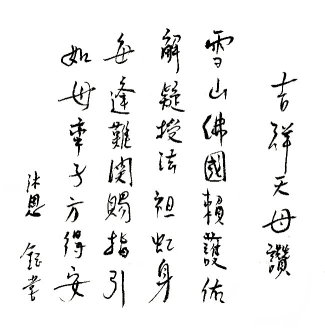 吉祥天母讚
雪山佛國賴護佑
解疑授法袒虹身
每逢難関賜指引
如母牽子方得安
沐恩 鈺書